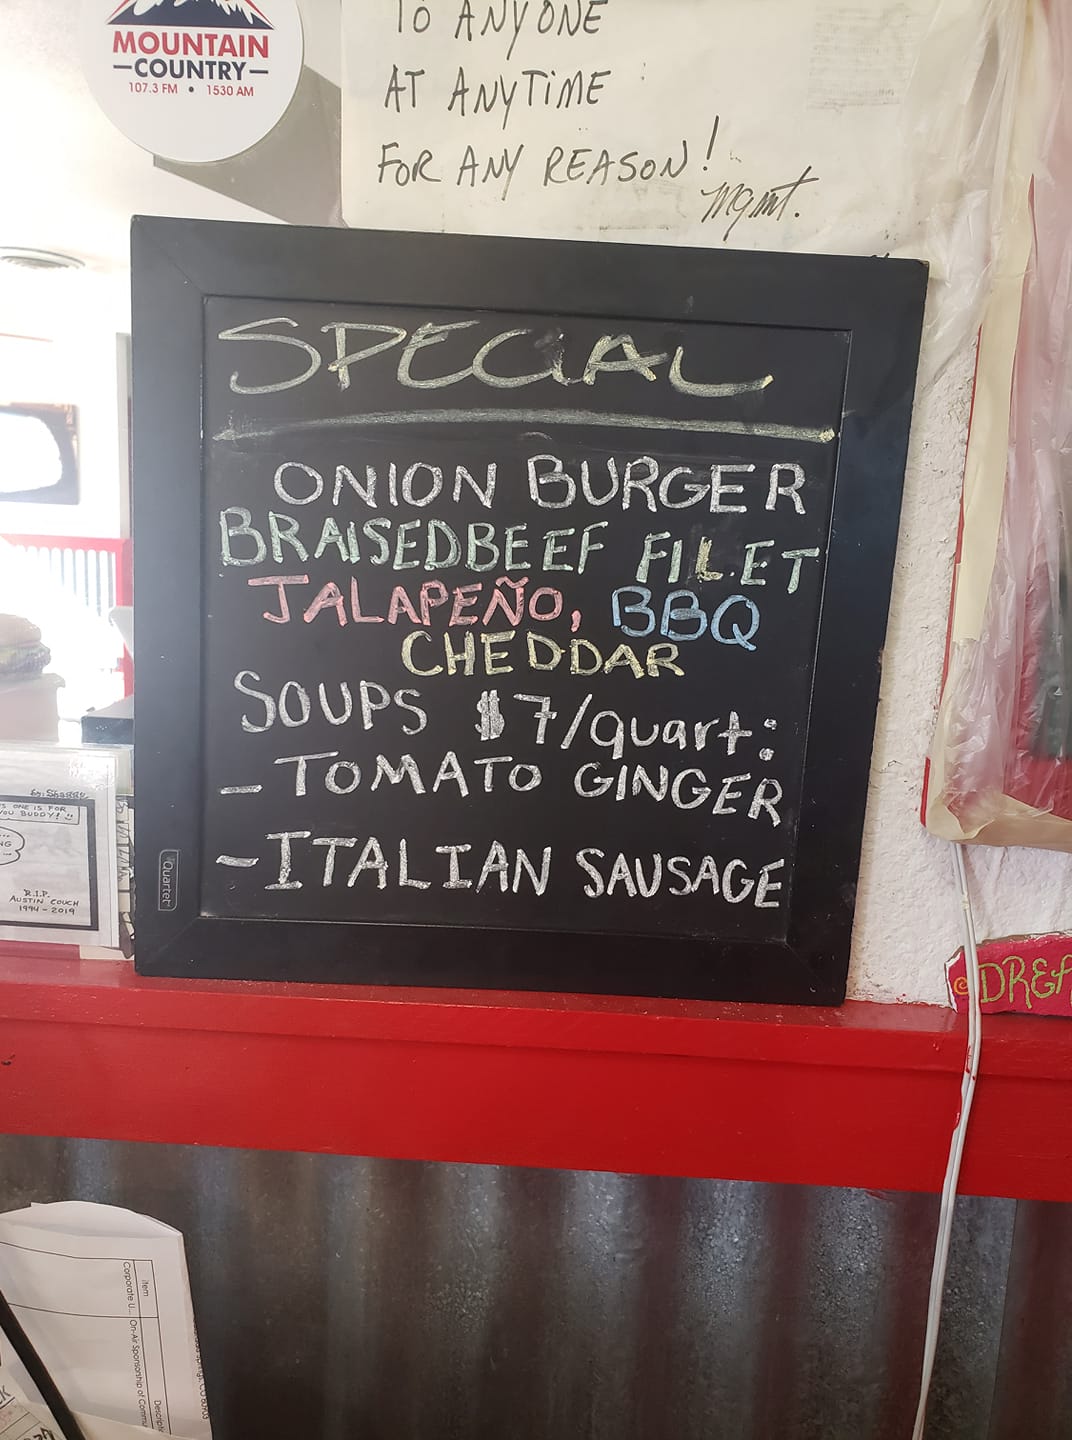 MOUNTAIN
COUNTRY
107.3 FM • 1530 AM
TO ANYONE
AT ANYTIME
FOR ANY REASON!
mgmt.
SPECIAL
ONION BURGER
BRAISED BEEF FILET
JALAPEÑO, BBQ
CHEDDAR
SOUPS $7/quart:
- TOMATO GINGER
- ITALIAN SAUSAGE
Quartet
ONE IS FOR
YOU BUDDY!
R.I.P.
AUSTIN COUCH
1994-2019
DREA
Item
Corporate U...
On-Air Sponsorship of Commu
Descripti